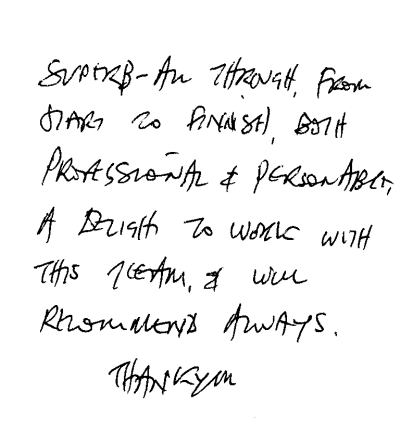 SUPERB - ALL THROUGH, FROM
START TO FINISH, BOTH
PROFESSIONAL & PERSONABLE,
A DELIGHT TO WORK WITH
THIS TEAM, & WILL
RECOMMEND ALWAYS.
THANKYOU